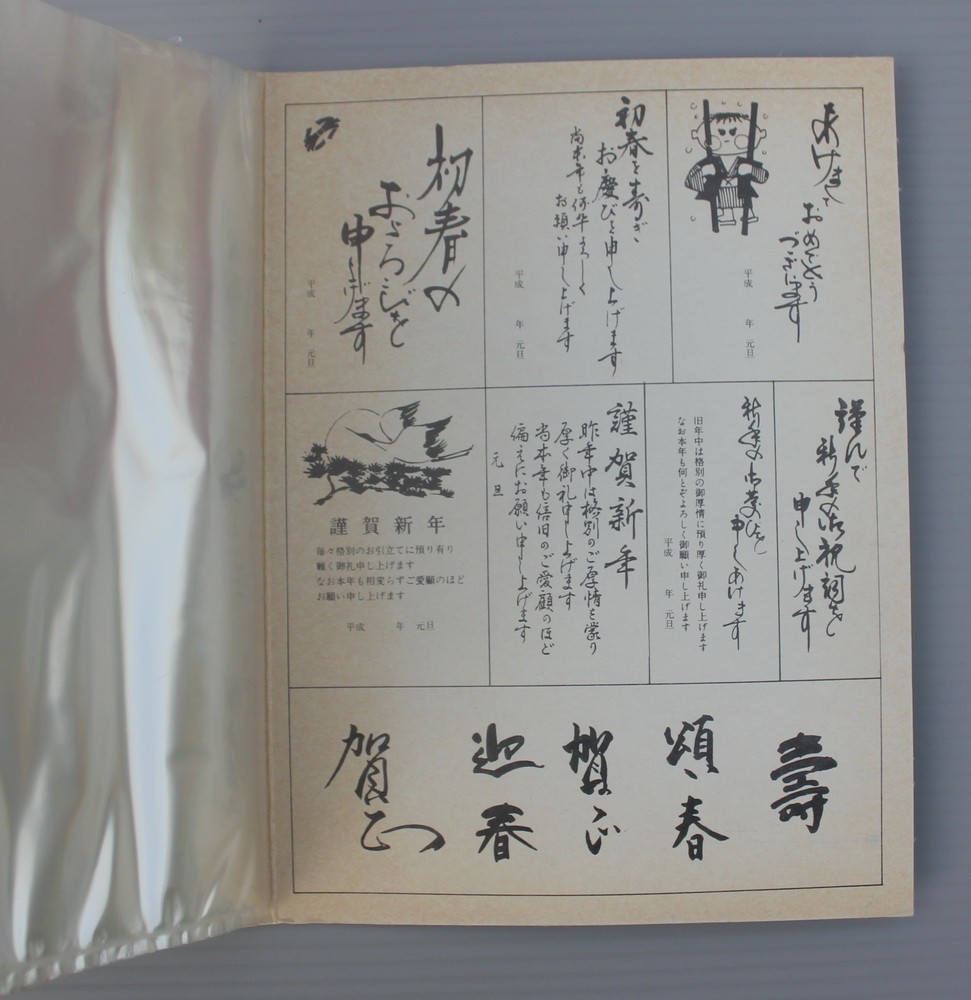 あけまして
おめでとう
ございます
平成　年　元旦
初春を寿ぎ
お慶びを申し上げます
尚本年も何卒よろしく
お願い申し上げます
平成　年　元旦
初春の
およろこびを
申しあげます
平成　年　元旦
謹んで
新年の御祝詞を
申し上げます
新年の御慶びを
申しあけます
旧年中は格別の御厚情に預り厚く御礼申し上げます
なお本年も何とぞよろしく御願い申し上げます
平成　年　元旦
謹賀新年
昨年中は格別のご厚情を蒙り
厚く御礼申し上げます
尚本年も倍旧のご愛顧のほど
偏えにお願い申し上げます
元旦
謹賀新年
毎々格別のお引立てに預り有り
難く御礼申し上げます
なお本年も相変らずご愛顧のほど
お願い申し上げます
平成　年　元旦
壽
頌春
賀正
迎春
賀正